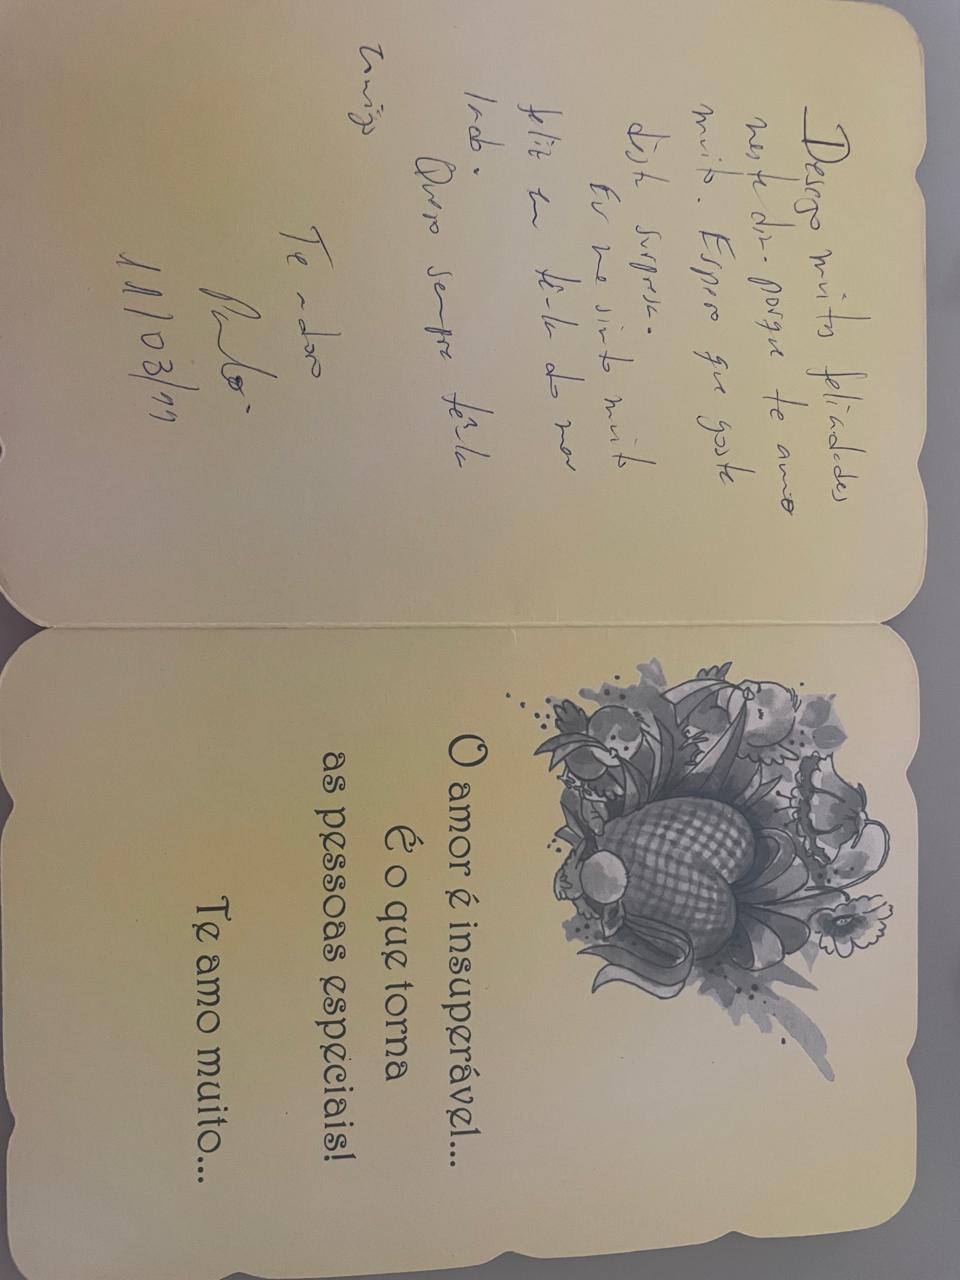 Desego muitas felicidades
neste dia. porque te amo
muito. Espero que goste
desta surpresa.
Eu me sinto muito
feliz em tê-la do meu
lado.
Quero sempre tê-la
comigo
Te adoro
Paulo.
11/03/99
O amor é insuperável...
É o que torna
as pessoas especiais!
Te amo muito...